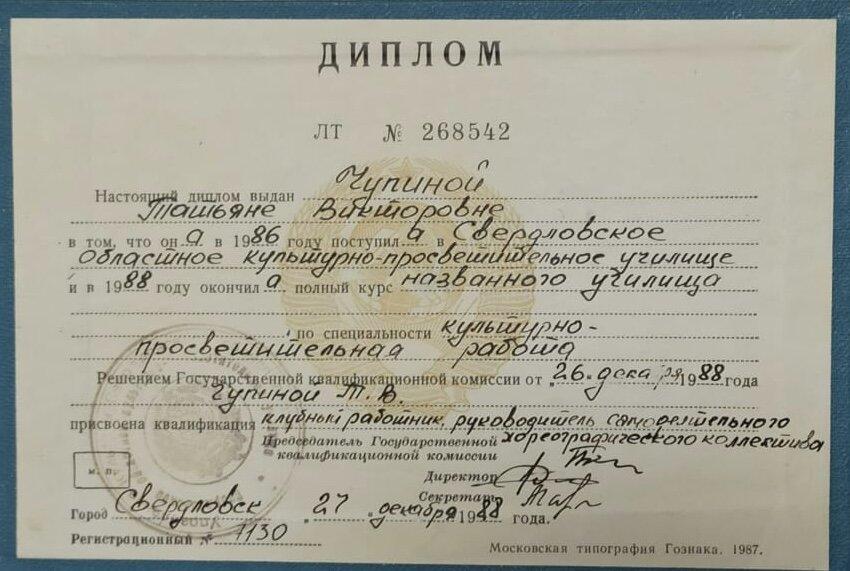 ДИПЛОМ
ЛТ № 268542
Настоящий диплом выдан Чупиной
Татьяне Викторовне
в том, что он а в 1986 году поступил а в Свердловское
областное культурно-просветительное училище
и в 1988 году окончил а полный курс названного училища
по специальности культурно-
просветительная работа
Решением Государственной квалификационной комиссии от „26„ декабря 1988 года
Чупиной Т.В.
присвоена квалификация клубный работник, руководитель самодеятельного
хореографического коллектива
Председатель Государственной
квалификационной комиссии
Директор
Секретарь
М. П.
Город Свердловск „27„ декабря 1988 года.
Регистрационный № 1130
Московская типография Гознака. 1987.